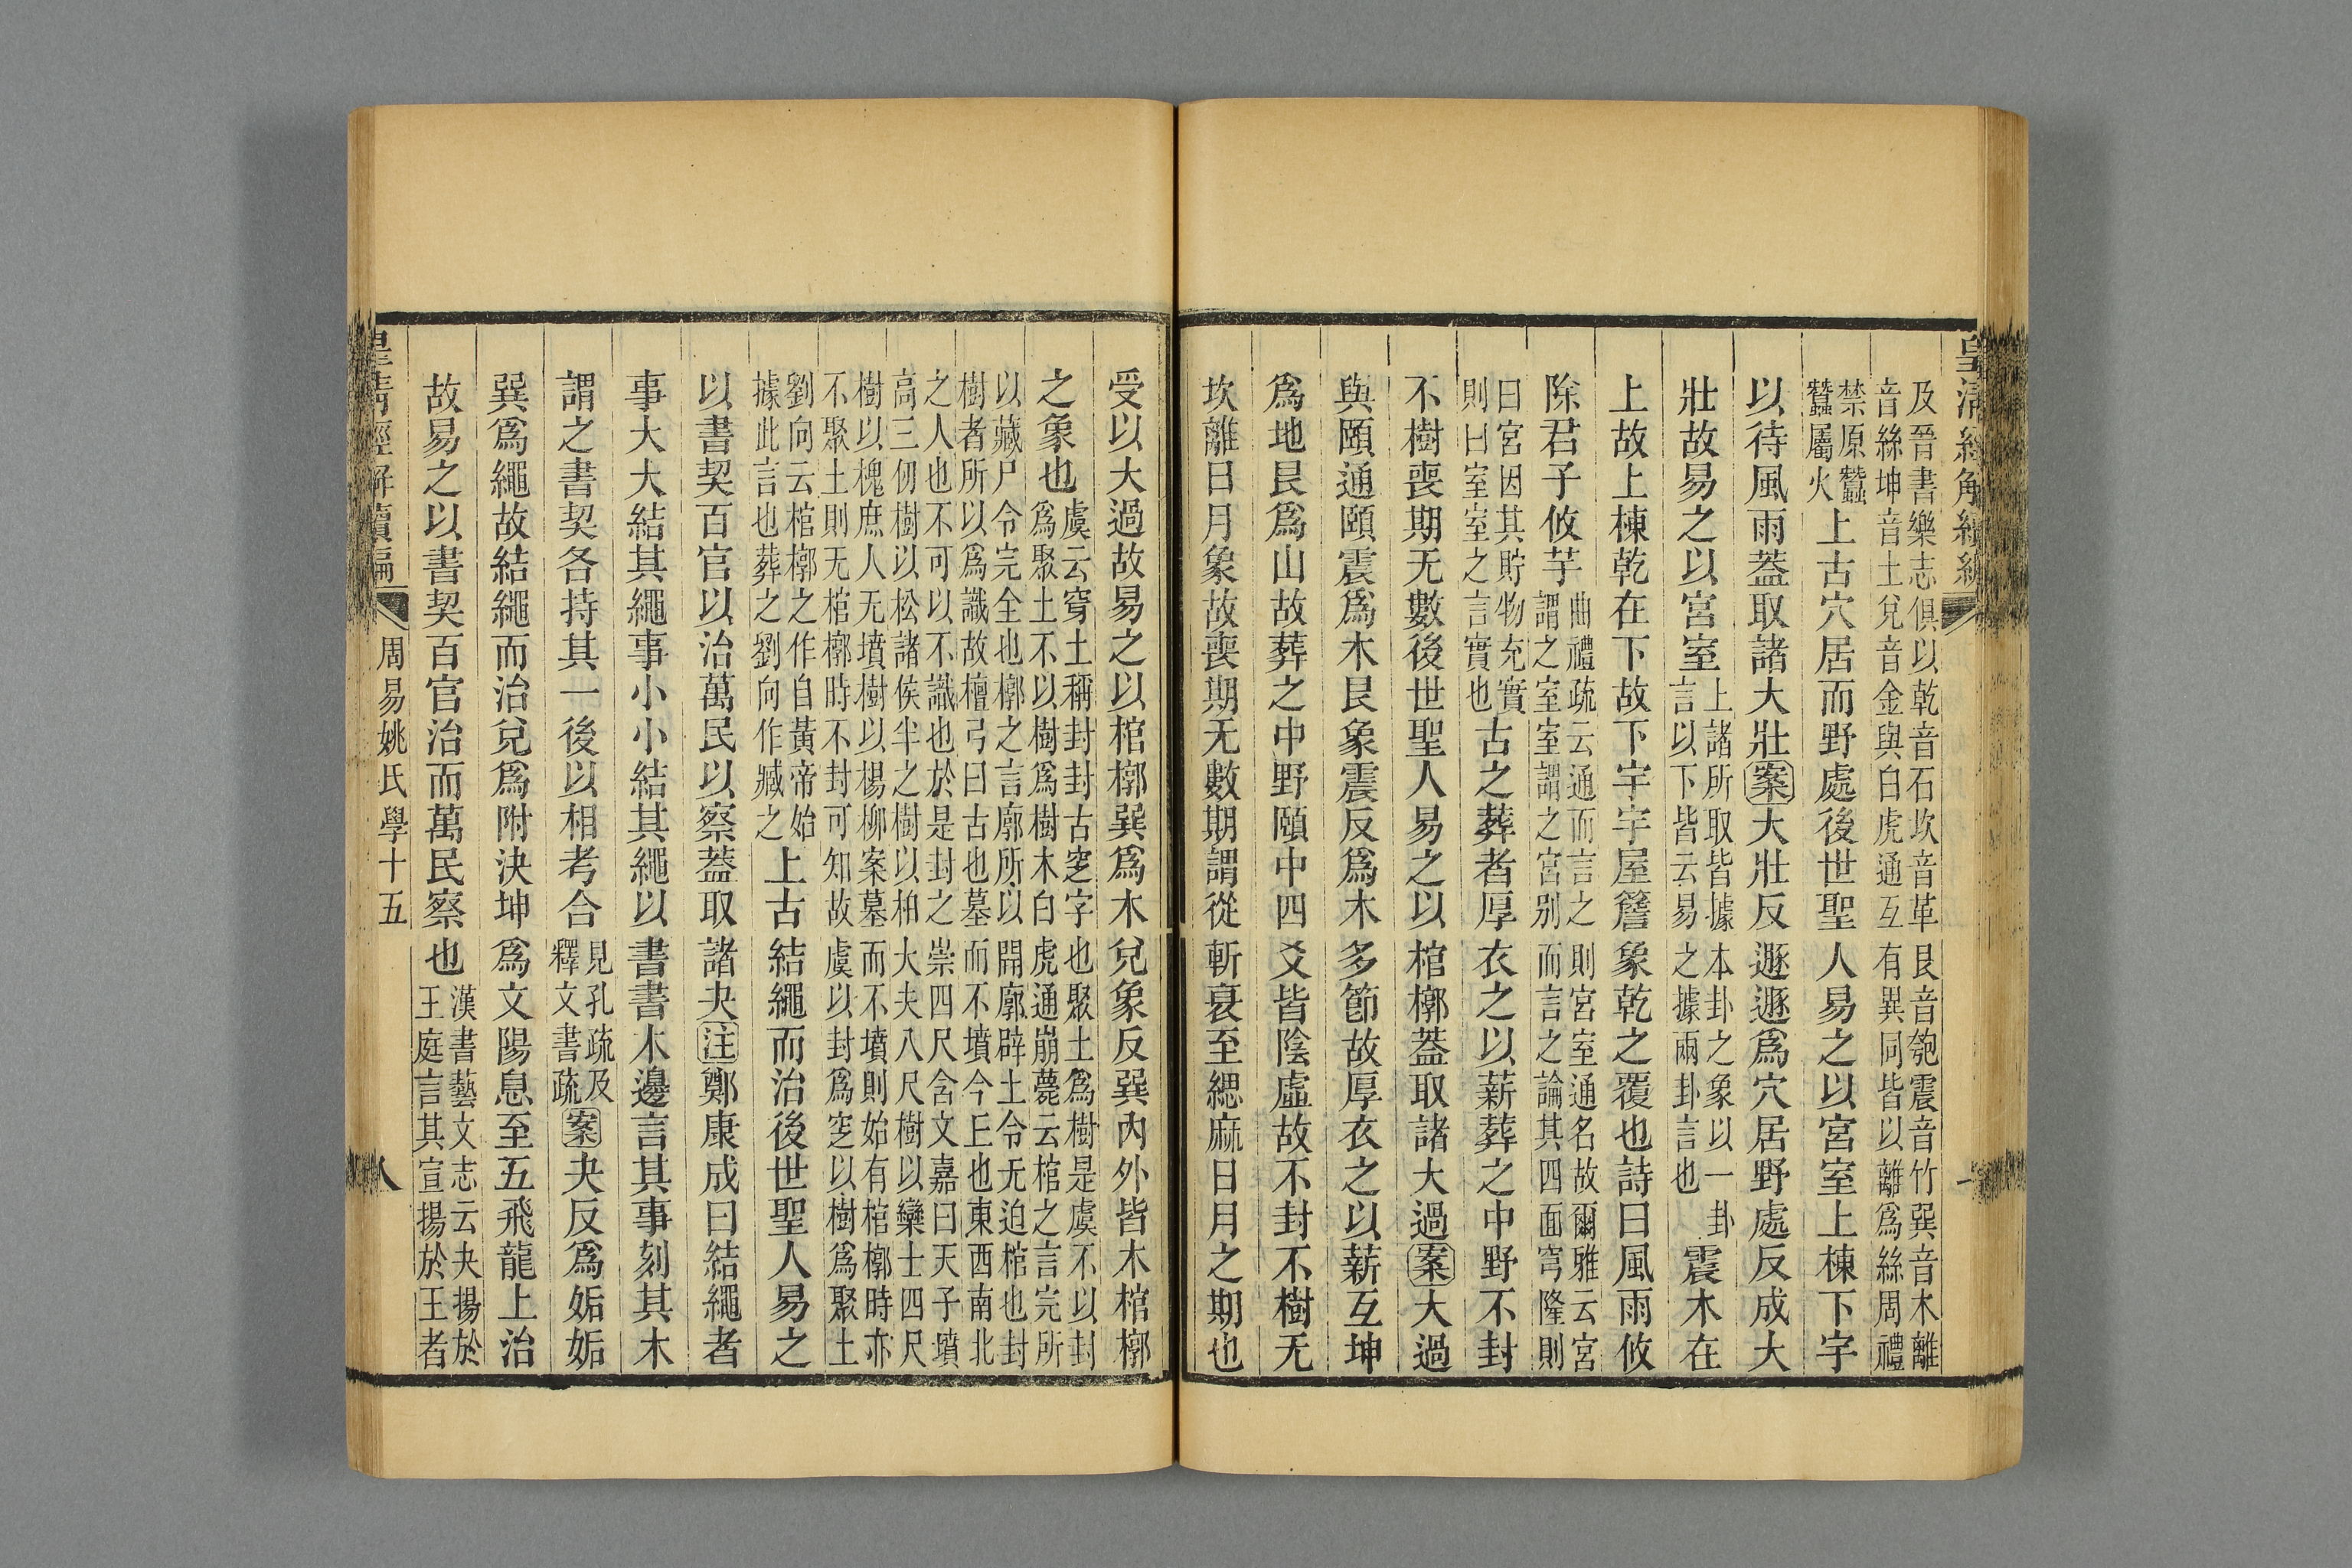 皇清經解續編
及晉書樂志俱以乾音石坎音革艮音匏震音竹巽音木離
音絲坤音土兌音金與白虎通互有異同皆以離爲絲周禮
禁原蠶
蠶屬火
上古穴居而野處後世聖人易之以宮室上棟下宇
以待風雨蓋取諸大壯案大壯反遯遯爲穴居野處反成大
壯故易之以宮室
上諸所取皆據本卦之象以一卦
言以下皆云易之據兩卦言也
震木在
上故上棟乾在下故下宇宇屋簷象乾之覆也詩曰風雨攸
除君子攸芋
曲禮疏云通而言之則宮室通名故爾雅云宮
謂之室室謂之宮別而言之論其四面穹隆則
曰宮因其貯物充實
則曰室室之言實也
古之葬者厚衣之以薪葬之中野不封
不樹喪期无數後世聖人易之以棺槨蓋取諸大過案大過
與頤通頤震爲木艮象震反爲木多節故厚衣之以薪互坤
爲地艮爲山故葬之中野頤中四爻皆陰虛故不封不樹无
坎離日月象故喪期无數期謂從斬衰至緦麻日月之期也
受以大過故易之以棺槨巽爲木兌象反巽內外皆木棺槨
之象也
虞云穿土稱封封古窆字也聚土爲樹是虞不以封
爲聚土不以樹爲樹木白虎通崩薨云棺之言完所
以藏尸令完全也槨之言廓所以開廓辟土令无迫棺也封
樹者所以爲識故檀弓曰古也墓而不墳今丘也東西南北
之人也不可以不識也於是封之崇四尺含文嘉曰天子墳
高三仞樹以松諸侯半之樹以柏大夫八尺樹以欒士四尺
樹以槐庶人无墳樹以楊柳案墓而不墳則始有棺槨時亦
不聚土則无棺槨時不封可知故虞以封爲窆以樹爲聚土
劉向云棺槨之作自黃帝始
據此言也葬之劉向作臧之
上古結繩而治後世聖人易之
以書契百官以治萬民以察蓋取諸夬注鄭康成曰結繩者
事大大結其繩事小小結其繩以書書木邊言其事刻其木
謂之書契各持其一後以相考合
見孔疏及
釋文書疏
案夬反爲姤姤
巽爲繩故結繩而治兌爲附決坤爲文陽息至五飛龍上治
故易之以書契百官治而萬民察也
漢書藝文志云夬揚於
王庭言其宣揚於王者
皇清經解續編
周易姚氏學十五
八